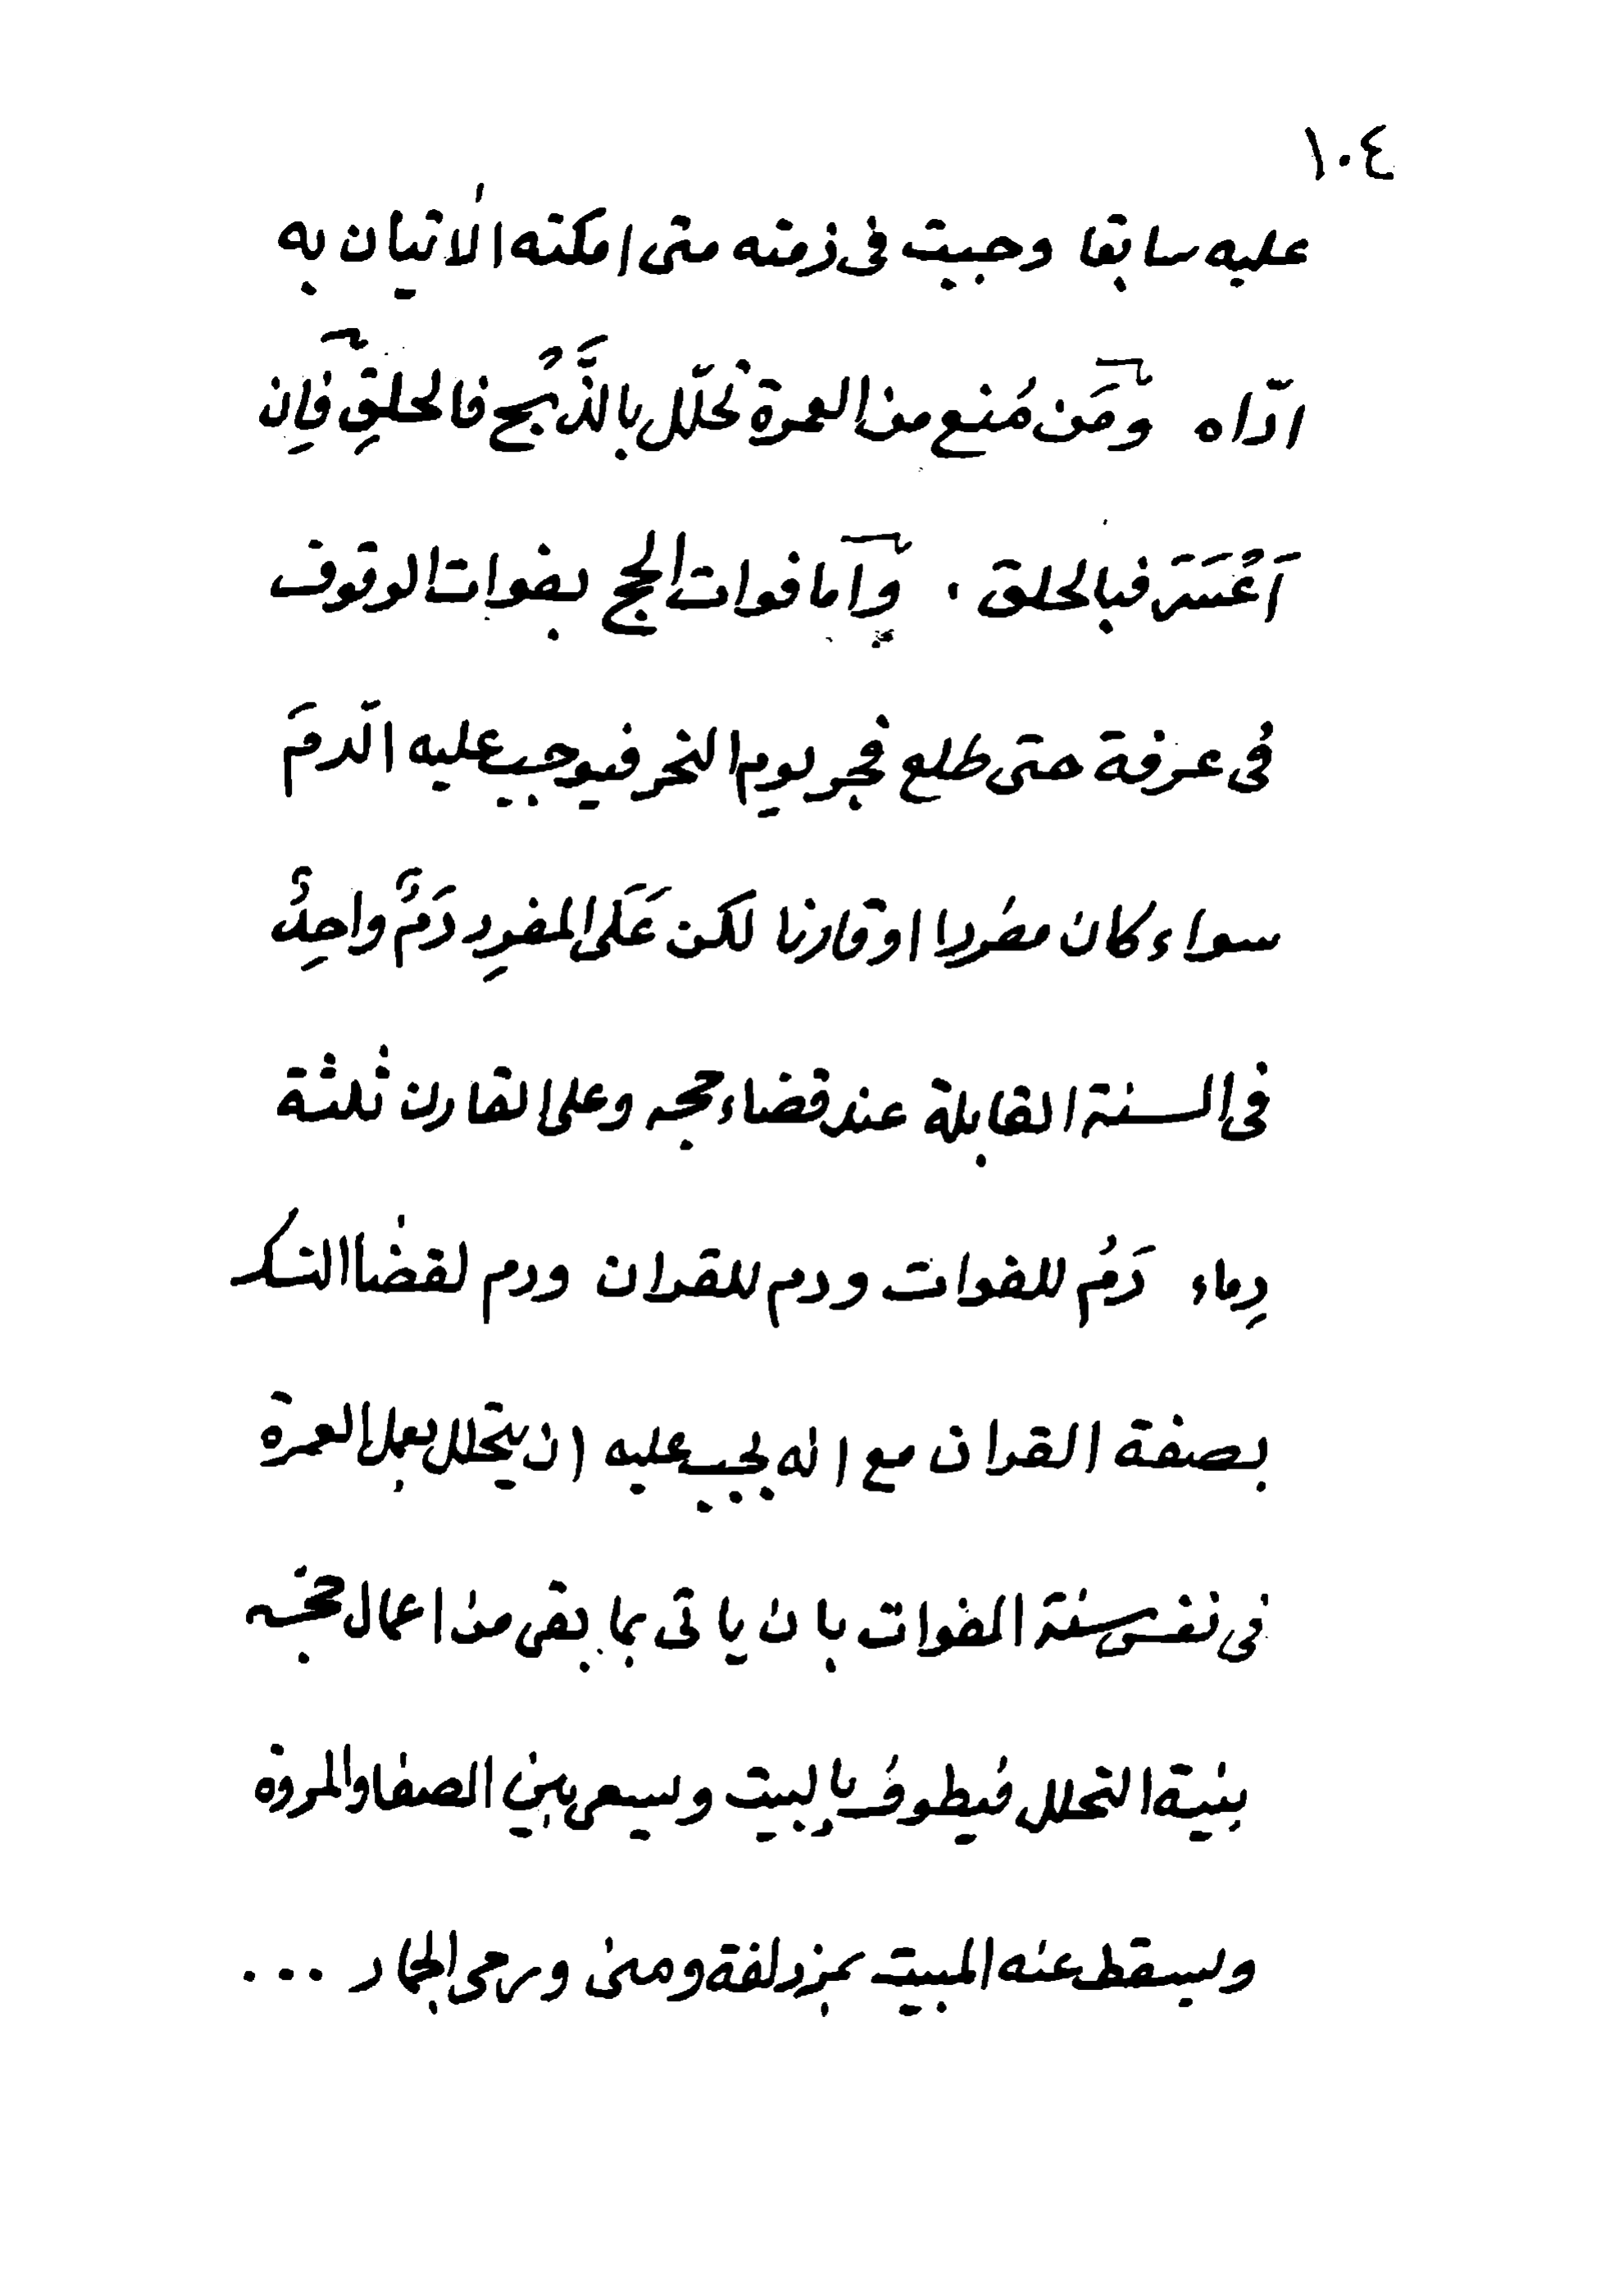 ١٠٤
عليه سابقا وجبت فى ذمته متى امكنه الاتيان به
ادّاه ومَن مُنع من العمرة تحلّل بالذَّبْح فالحلقِ فإن
اَعْسَرَ فبالحلق . وأما فوات الحج بفوات الوقوف
فى عرفة حتى طلع فجر يوم النحر فيوجب عليه الّدمَ
سواء كان مفردا او قارنا لكن عَلَى المفرِد دَمٌ واحِدٌ
فى السنة القابلة عند قضاء حجه وعلى القارن ثلثة
دِماء دَمُ للفوات ودم للقران ودم لقضا النسك
بصفة القران مع انه يجب عليه ان يتحلل بعمل العمرة
فى نفس سنة الفوات بان ياتى بما بقى من اعمال حجّه
بنية التحلل فيطوفُ بالبيت ويسعى بين الصفا والمروة
ويسقط عنه المبيت بمزدلفة ومنى ورمى الجمار ...